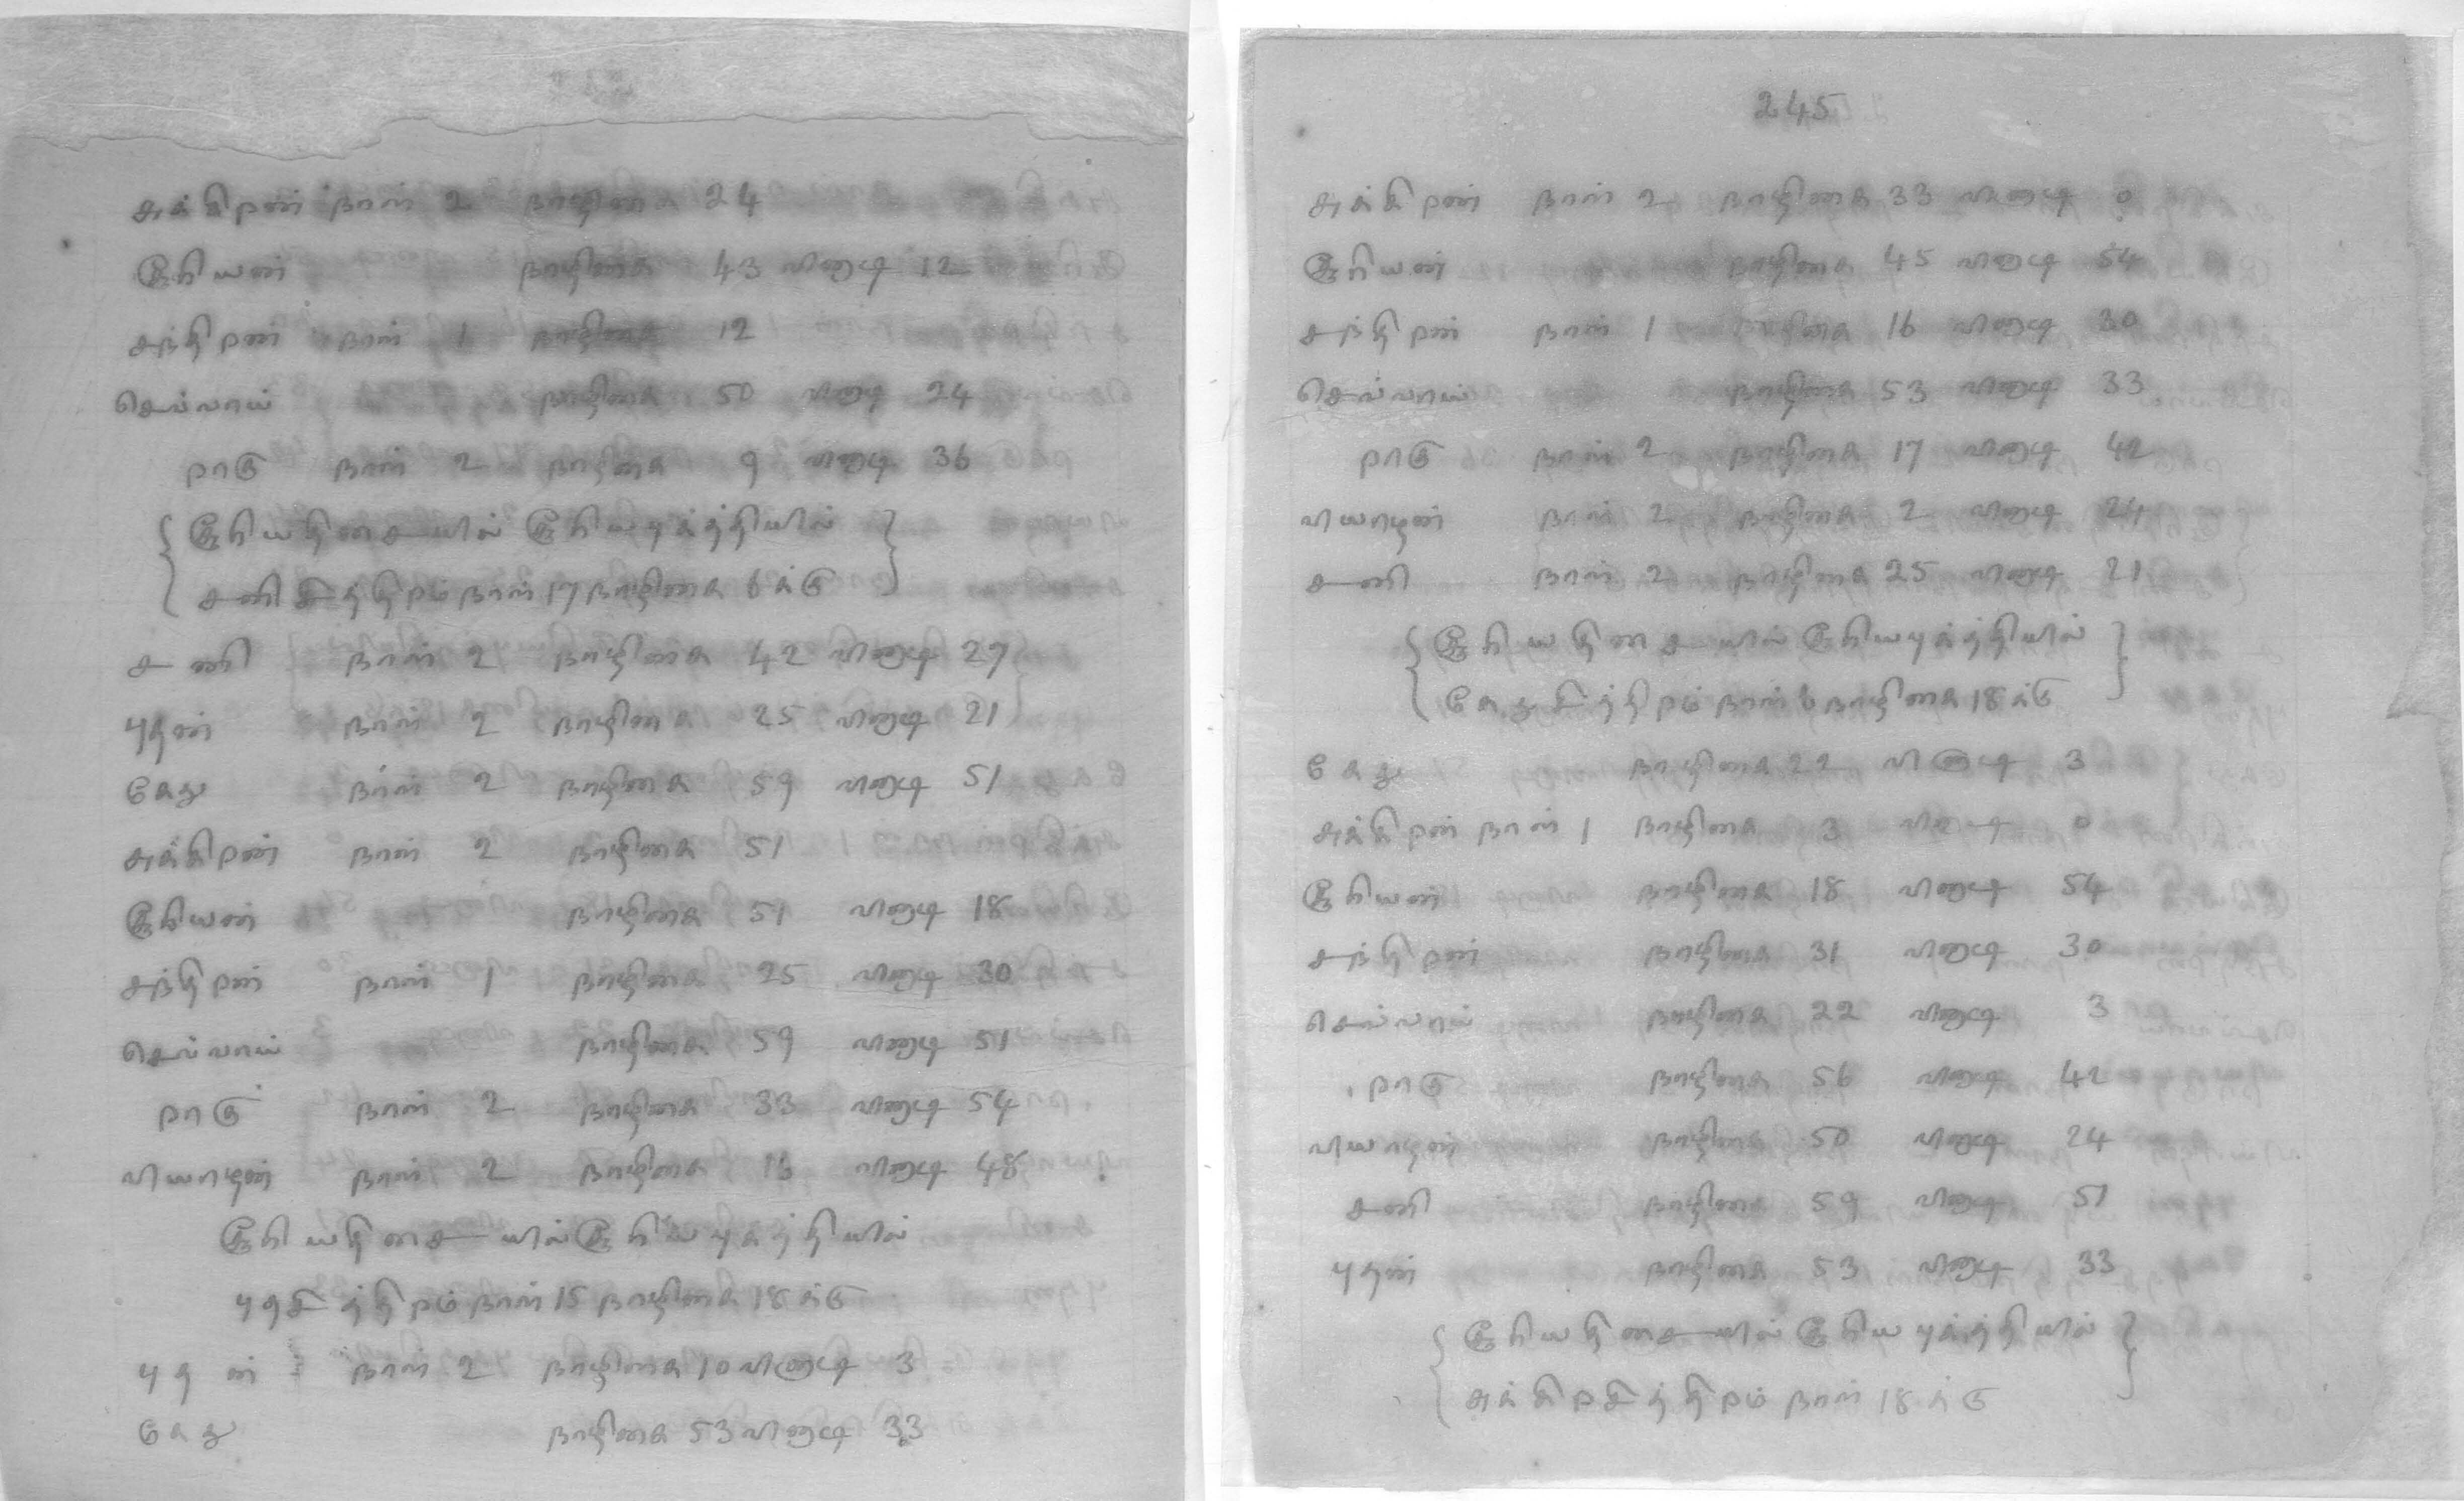 சுக்கிரன் நாள் 2 நாழிகை 24
சூரியன் நாழிகை 43 வினாடி 12
சந்திரன் நாள் 1 நாழிகை 12
செவ்வாய் நாழிகை 50 வினாடி 24
ராகு நாள் 2 நாழிகை 9 வினாடி 36
சூரியதிசையில் சூரியபுக்த்தியில்
சனிசித்திரம் நாள் 17 நாழிகை 6 க்கு
சனி நாள் 2 நாழிகை 42 வினாடி 27
புதன் நாள் 2 நாழிகை 25 வினாடி 21
கேது நாள் 2 நாழிகை 59 வினாடி 51
சுக்கிரன் நாள் 2 நாழிகை 51
சூரியன் நாழிகை 51 வினாடி 18
சந்திரன் நாள் 1 நாழிகை 25 வினாடி 30
செவ்வாய் நாழிகை 59 வினாடி 51
ராகு நாள் 2 நாழிகை 33 வினாடி 54
வியாழன் நாள் 2 நாழிகை 16 வினாடி 48
சூரியதிசையில் சூரியபுக்த்தியில்
புதசித்திரம் நாள் 15 நாழிகை 18 க்கு
புதன் நாள் 2 நாழிகை 10 வினாடி 3
கேது நாழிகை 53 வினாடி 33
245
சுக்கிரன் நாள் 2 நாழிகை 33 வினாடி 0
சூரியன் நாழிகை 45 வினாடி 54
சந்திரன் நாள் 1 நாழிகை 16 வினாடி 30
செவ்வாய் நாழிகை 53 வினாடி 33
ராகு நாள் 2 நாழிகை 17 வினாடி 42
வியாழன் நாள் 2 நாழிகை 2 வினாடி 24
சனி நாள் 2 நாழிகை 25 வினாடி 21
சூரியதிசையில் சூரியபுக்த்தியில்
கேதுசித்திரம் நாள் 6 நாழிகை 18 க்கு
கேது நாழிகை 22 வினாடி 3
சுக்கிரன் நாள் 1 நாழிகை 3 வினாடி 0
சூரியன் நாழிகை 18 வினாடி 54
சந்திரன் நாழிகை 31 வினாடி 30
செவ்வாய் நாழிகை 22 வினாடி 3
ராகு நாழிகை 56 வினாடி 42
வியாழன் நாழிகை 50 வினாடி 24
சனி நாழிகை 59 வினாடி 51
புதன் நாழிகை 53 வினாடி 33
சூரியதிசையில் சூரியபுக்த்தியில்
சுக்கிரசித்திரம் நாள் 18 க்கு